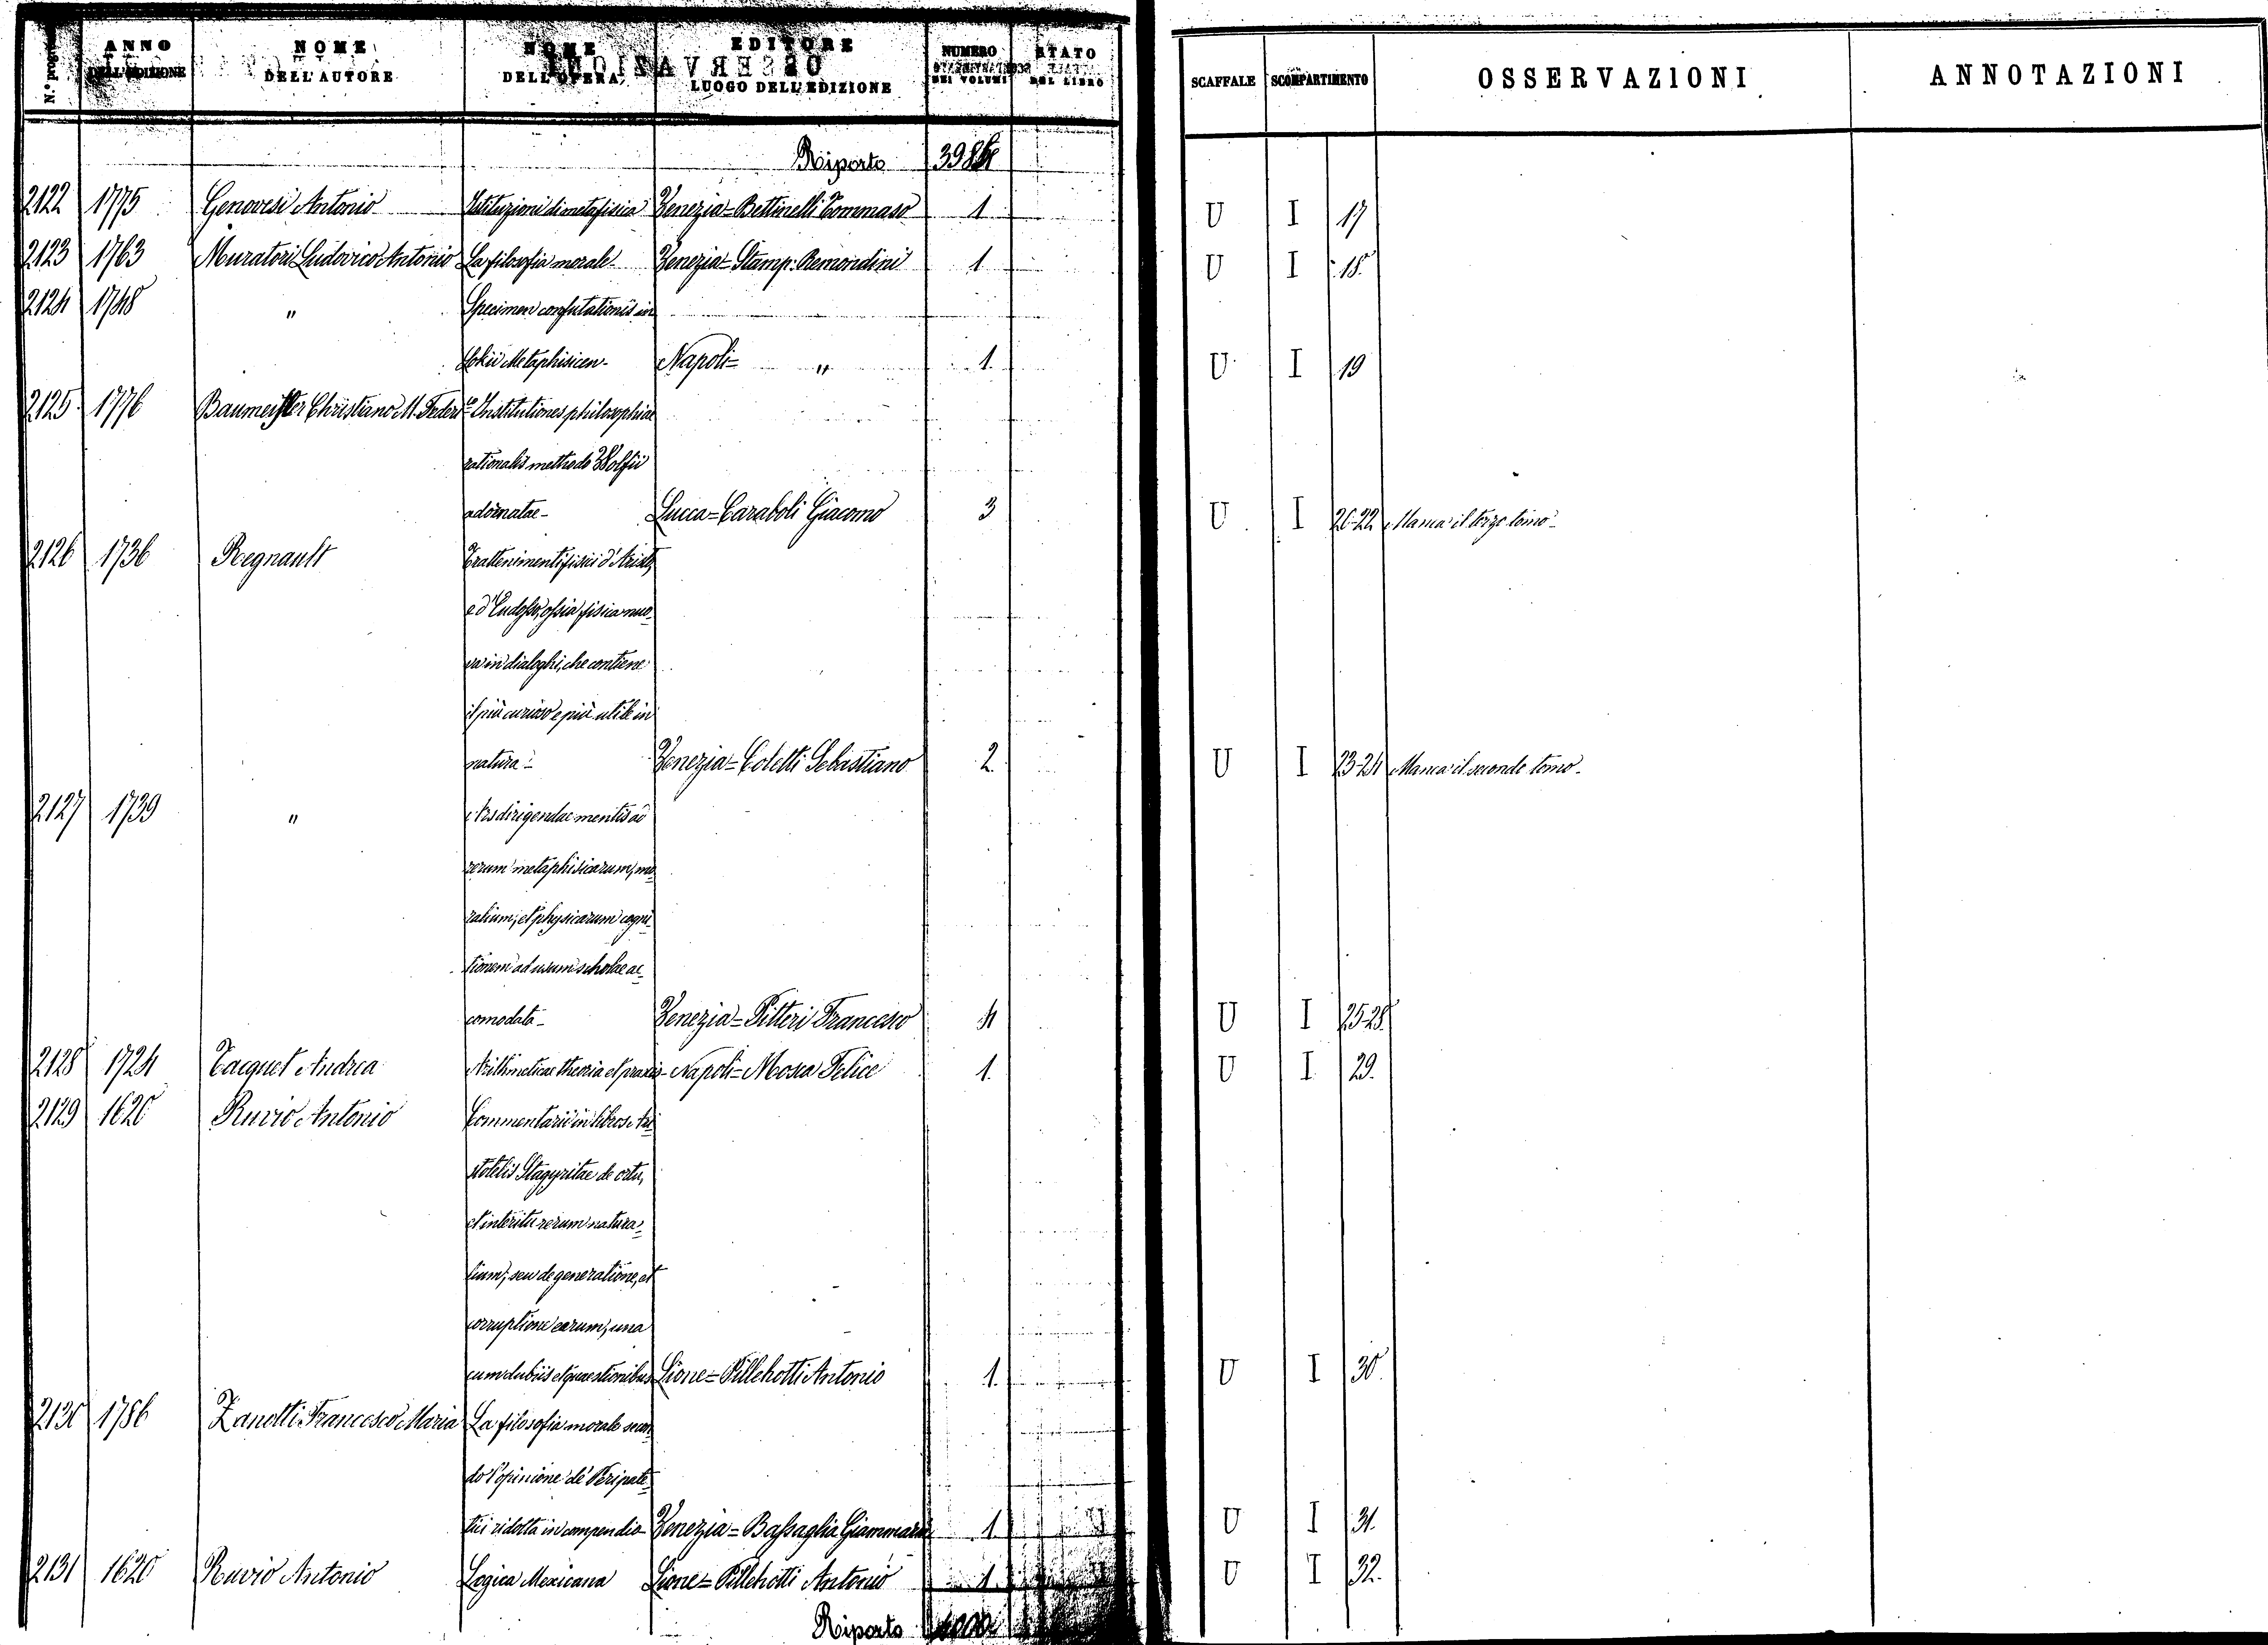 N.° progr. ANNO DELL'EDIZIONE NOME DELL'AUTORE NOME DELL'OPERA EDITORE LUOGO DELL'EDIZIONE NUMERO DEI VOLUMI STATO DEL LIBRO SCAFFALE SCOMPARTIMENTO OSSERVAZIONI ANNOTAZIONI
Riporto
2122 1775 Genovesi Antonio Istituzioni di metafisica Venezia = Bettinelli Tommaso 1 U I 17
2123 1763 Muratori Ludovico Antonio La filosofia morale Venezia = Stamp: Remondini 1 U I 18.
2124 1748 " Specimen confutationis in
Lokii Metaphisicen - Napoli = " 1. U I 19
2125. 1776 Baumeister Christiano M. Federco Institutiones philosophiae
rationalis methodo Wolfii
adornatae - Lucca = Caraboli Giacomo 3 U I 20-22 Manca il terzo tomo -
2126 1736 Regnault Trattenimenti fisici d'Aristo,
e d'Eudosso, ossia fisica nuo-
va in dialoghi, che contiene
il più curioso e più utile in
natura - Venezia = Coletti Sebastiano 2 U I 23-24 Manca il secondo tomo -
2127 1739 " Ars dirigendae mentis ad
rerum metaphisicarum, mo-
ralium, et physicarum cogni-
tionem ad usum scholae ac-
comodata - Venezia = Pitteri Francesco 4 U I 25-28.
2128 1724 Tacquet Andrea Arithmeticae theoria et praxis - Napoli = Mosca Felice 1. U I 29.
2129 1620 Ruvio Antonio Commentarii in libros Ari-
stotelis Stagyritae de ortu,
et interitu rerum natura-
lium, seu de generatione, et
corruptione earum, una
cum dubiis et quaestionibus Lione = Pillehotti Antonio 1. U I 30.
2130 1786 Zanotti Francesco Maria La filosofia morale secon-
do l'opinione de' Peripate-
tici ridotta in compendio - Venezia = Bassaglia Giammaria 1. U I 31.
2131 1620 Ruvio Antonio Logica Mexicana Lione = Pillehotti Antonio 1. U I 32.
Riporto